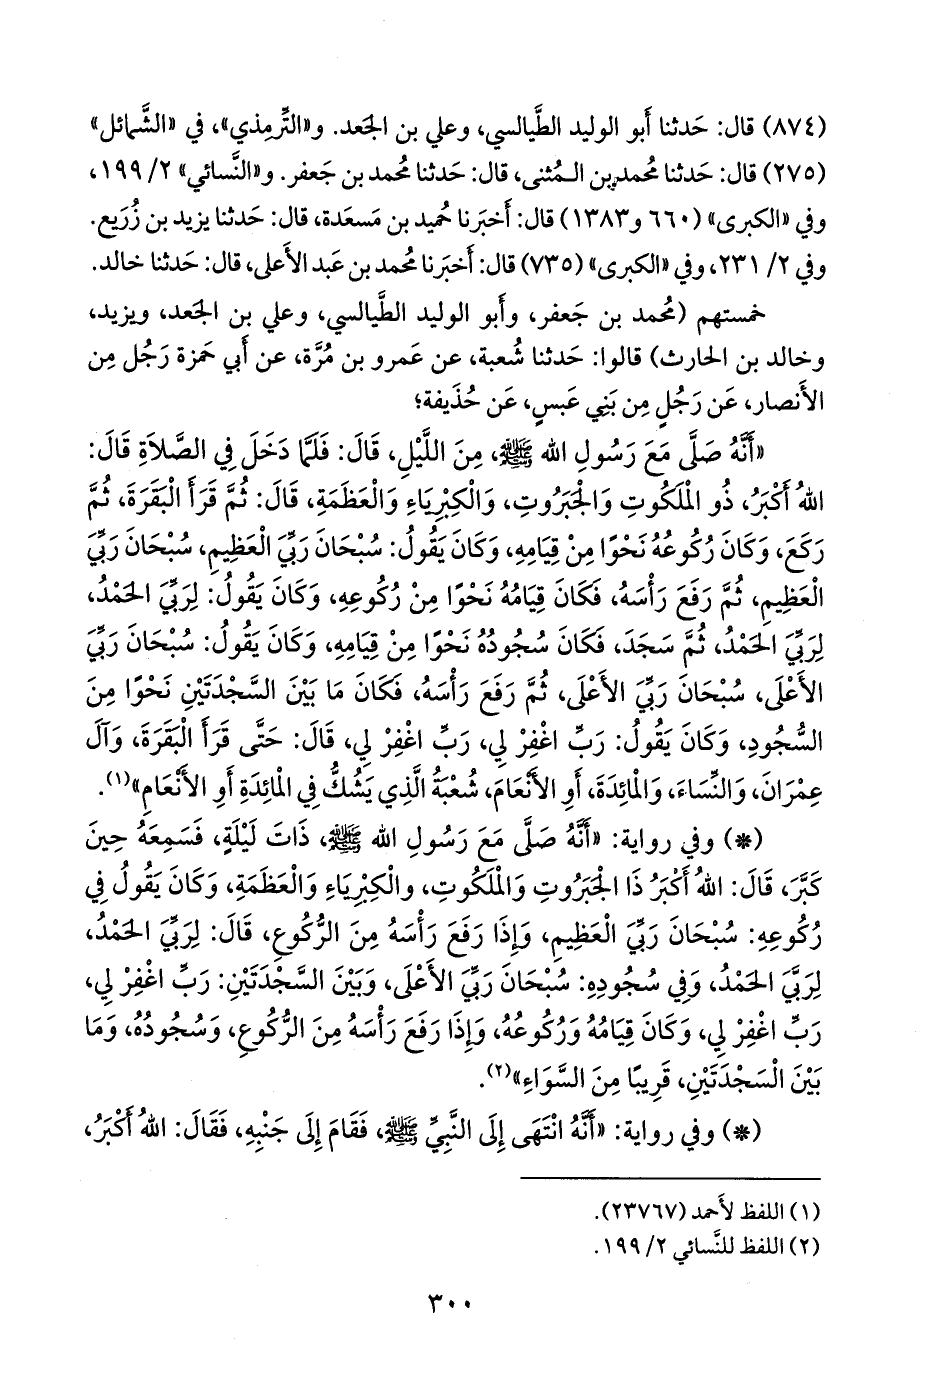 (٨٧٤) قال: حَدثنا أَبو الوليد الطَّيالسي، وعلي بن الجَعد. و«التِّرمِذي»، في «الشَّمائل»
(٢٧٥) قال: حَدثنا مُحمد بن الـمُثنى، قال: حَدثنا مُحمد بن جَعفر. و«النَّسائي» ٢/ ١٩٩،
وفي «الكبرى» (٦٦٠ و١٣٨٣) قال: أَخبَرنا حُميد بن مَسعَدة، قال: حَدثنا يزيد بن زُرَيع.
وفي ٢/ ٢٣١، وفي «الكبرى» (٧٣٥) قال: أَخبَرنا مُحمد بن عَبد الأَعلى، قال: حَدثنا خالد.
خمستهم (مُحمد بن جَعفر، وأَبو الوليد الطَّيالسي، وعلي بن الجَعد، ويزيد،
وخالد بن الحارث) قالوا: حَدثنا شُعبة، عن عَمرو بن مُرَّة، عن أَبي حَمزة رَجُل مِن
الأَنصار، عَن رَجُلٍ مِن بَنِي عَبسٍ، عَن حُذَيفة؛
«أَنَّهُ صَلَّى مَعَ رَسُولِ الله ﷺ، مِنَ اللَّيْلِ، قَالَ: فَلَمَّا دَخَلَ فِي الصَّلاَةِ قَالَ:
اللهُ أَكْبَرُ، ذُو الْمَلَكُوتِ وَالْجَبَرُوتِ، وَالْكِبْرِيَاءِ وَالْعَظَمَةِ، قَالَ: ثُمَّ قَرَأَ الْبَقَرَةَ، ثُمَّ
رَكَعَ، وَكَانَ رُكُوعُهُ نَحْوًا مِنْ قِيَامِهِ، وَكَانَ يَقُولُ: سُبْحَانَ رَبِّيَ الْعَظِيمِ، سُبْحَانَ رَبِّيَ
الْعَظِيمِ، ثُمَّ رَفَعَ رَأْسَهُ، فَكَانَ قِيَامُهُ نَحْوًا مِنْ رُكُوعِهِ، وَكَانَ يَقُولُ: لِرَبِّيَ الْحَمْدُ،
لِرَبِّيَ الْحَمْدُ، ثُمَّ سَجَدَ، فَكَانَ سُجُودُهُ نَحْوًا مِنْ قِيَامِهِ، وَكَانَ يَقُولُ: سُبْحَانَ رَبِّيَ
الأَعْلَى، سُبْحَانَ رَبِّيَ الأَعْلَى، ثُمَّ رَفَعَ رَأْسَهُ، فَكَانَ مَا بَيْنَ السَّجْدَتَيْنِ نَحْوًا مِنَ
السُّجُودِ، وَكَانَ يَقُولُ: رَبِّ اغْفِرْ لِي، رَبِّ اغْفِرْ لِي، قَالَ: حَتَّى قَرَأَ الْبَقَرَةَ، وَآلَ
عِمْرَانَ، وَالنِّسَاءَ، وَالْمَائِدَةَ، أَوِ الأَنْعَامَ، شُعْبَةُ الَّذِي يَشُكُّ فِي الْمَائِدَةِ أَوِ الأَنْعَامِ»(١).
(*) وفي رواية: «أَنَّهُ صَلَّى مَعَ رَسُولِ الله ﷺ، ذَاتَ لَيْلَةٍ، فَسَمِعَهُ حِينَ
كَبَّرَ، قَالَ: اللهُ أَكْبَرُ ذَا الْجَبَرُوتِ وَالْمَلَكُوتِ، والْكِبْرِيَاءِ وَالْعَظَمَةِ، وَكَانَ يَقُولُ فِي
رُكُوعِهِ: سُبْحَانَ رَبِّيَ الْعَظِيمِ، وَإِذَا رَفَعَ رَأْسَهُ مِنَ الرُّكُوعِ، قَالَ: لِرَبِّيَ الْحَمْدُ،
لِرَبِّيَ الْحَمْدُ، وَفِي سُجُودِهِ: سُبْحَانَ رَبِّيَ الأَعْلَى، وَبَيْنَ السَّجْدَتَيْنِ: رَبِّ اغْفِرْ لِي،
رَبِّ اغْفِرْ لِي، وَكَانَ قِيَامُهُ وَرُكُوعُهُ، وَإِذَا رَفَعَ رَأْسَهُ مِنَ الرُّكُوعِ، وَسُجُودُهُ، وَمَا
بَيْنَ الْسَجْدَتَيْنِ، قَرِيبًا مِنَ السَّوَاءِ»(٢).
(*) وفي رواية: «أَنَّهُ انْتَهَى إِلَى النَّبِيِّ ﷺ، فَقَامَ إِلَى جَنْبِهِ، فَقَالَ: اللهُ أَكْبَرُ،
(١) اللفظ لأَحمد (٢٣٧٦٧).
(٢) اللفظ للنَّسائي ٢/ ١٩٩.
٣٠٠